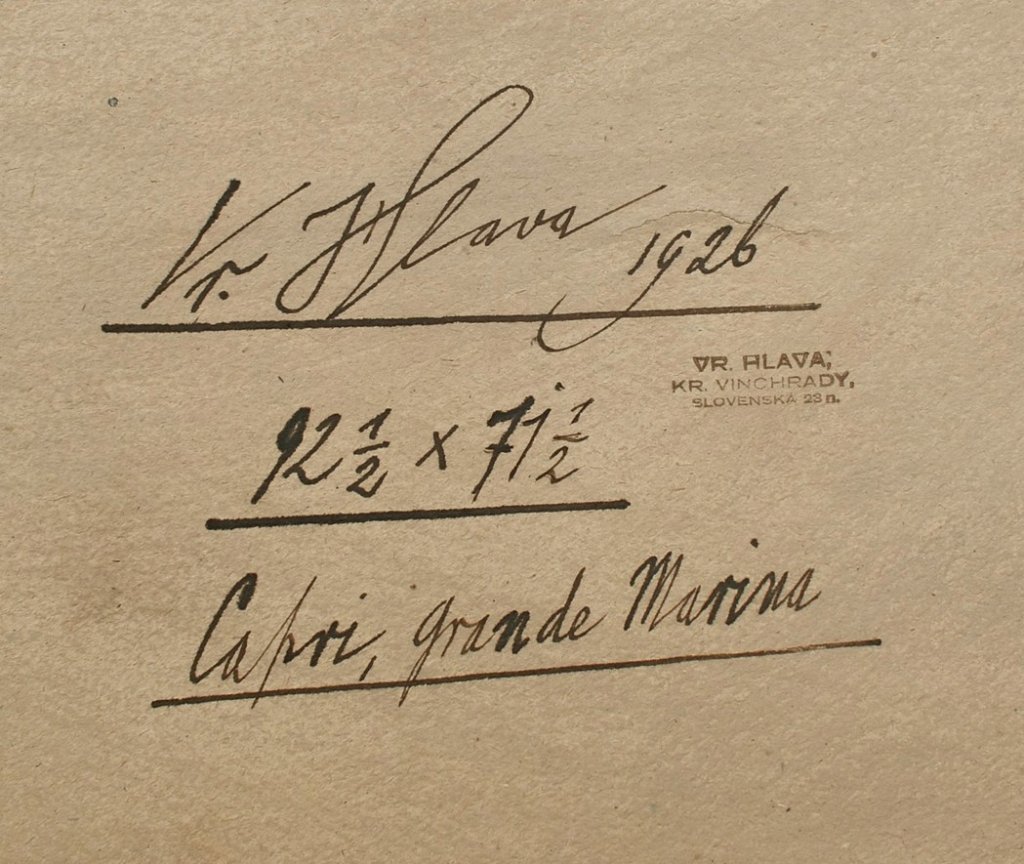 Vr. Hlava 1926
VR. HLAVA,
KR. VINCHRADY,
SLOVENSKÁ 23 n.
92 1/2 x 71 1/2
Capri, grande Marina